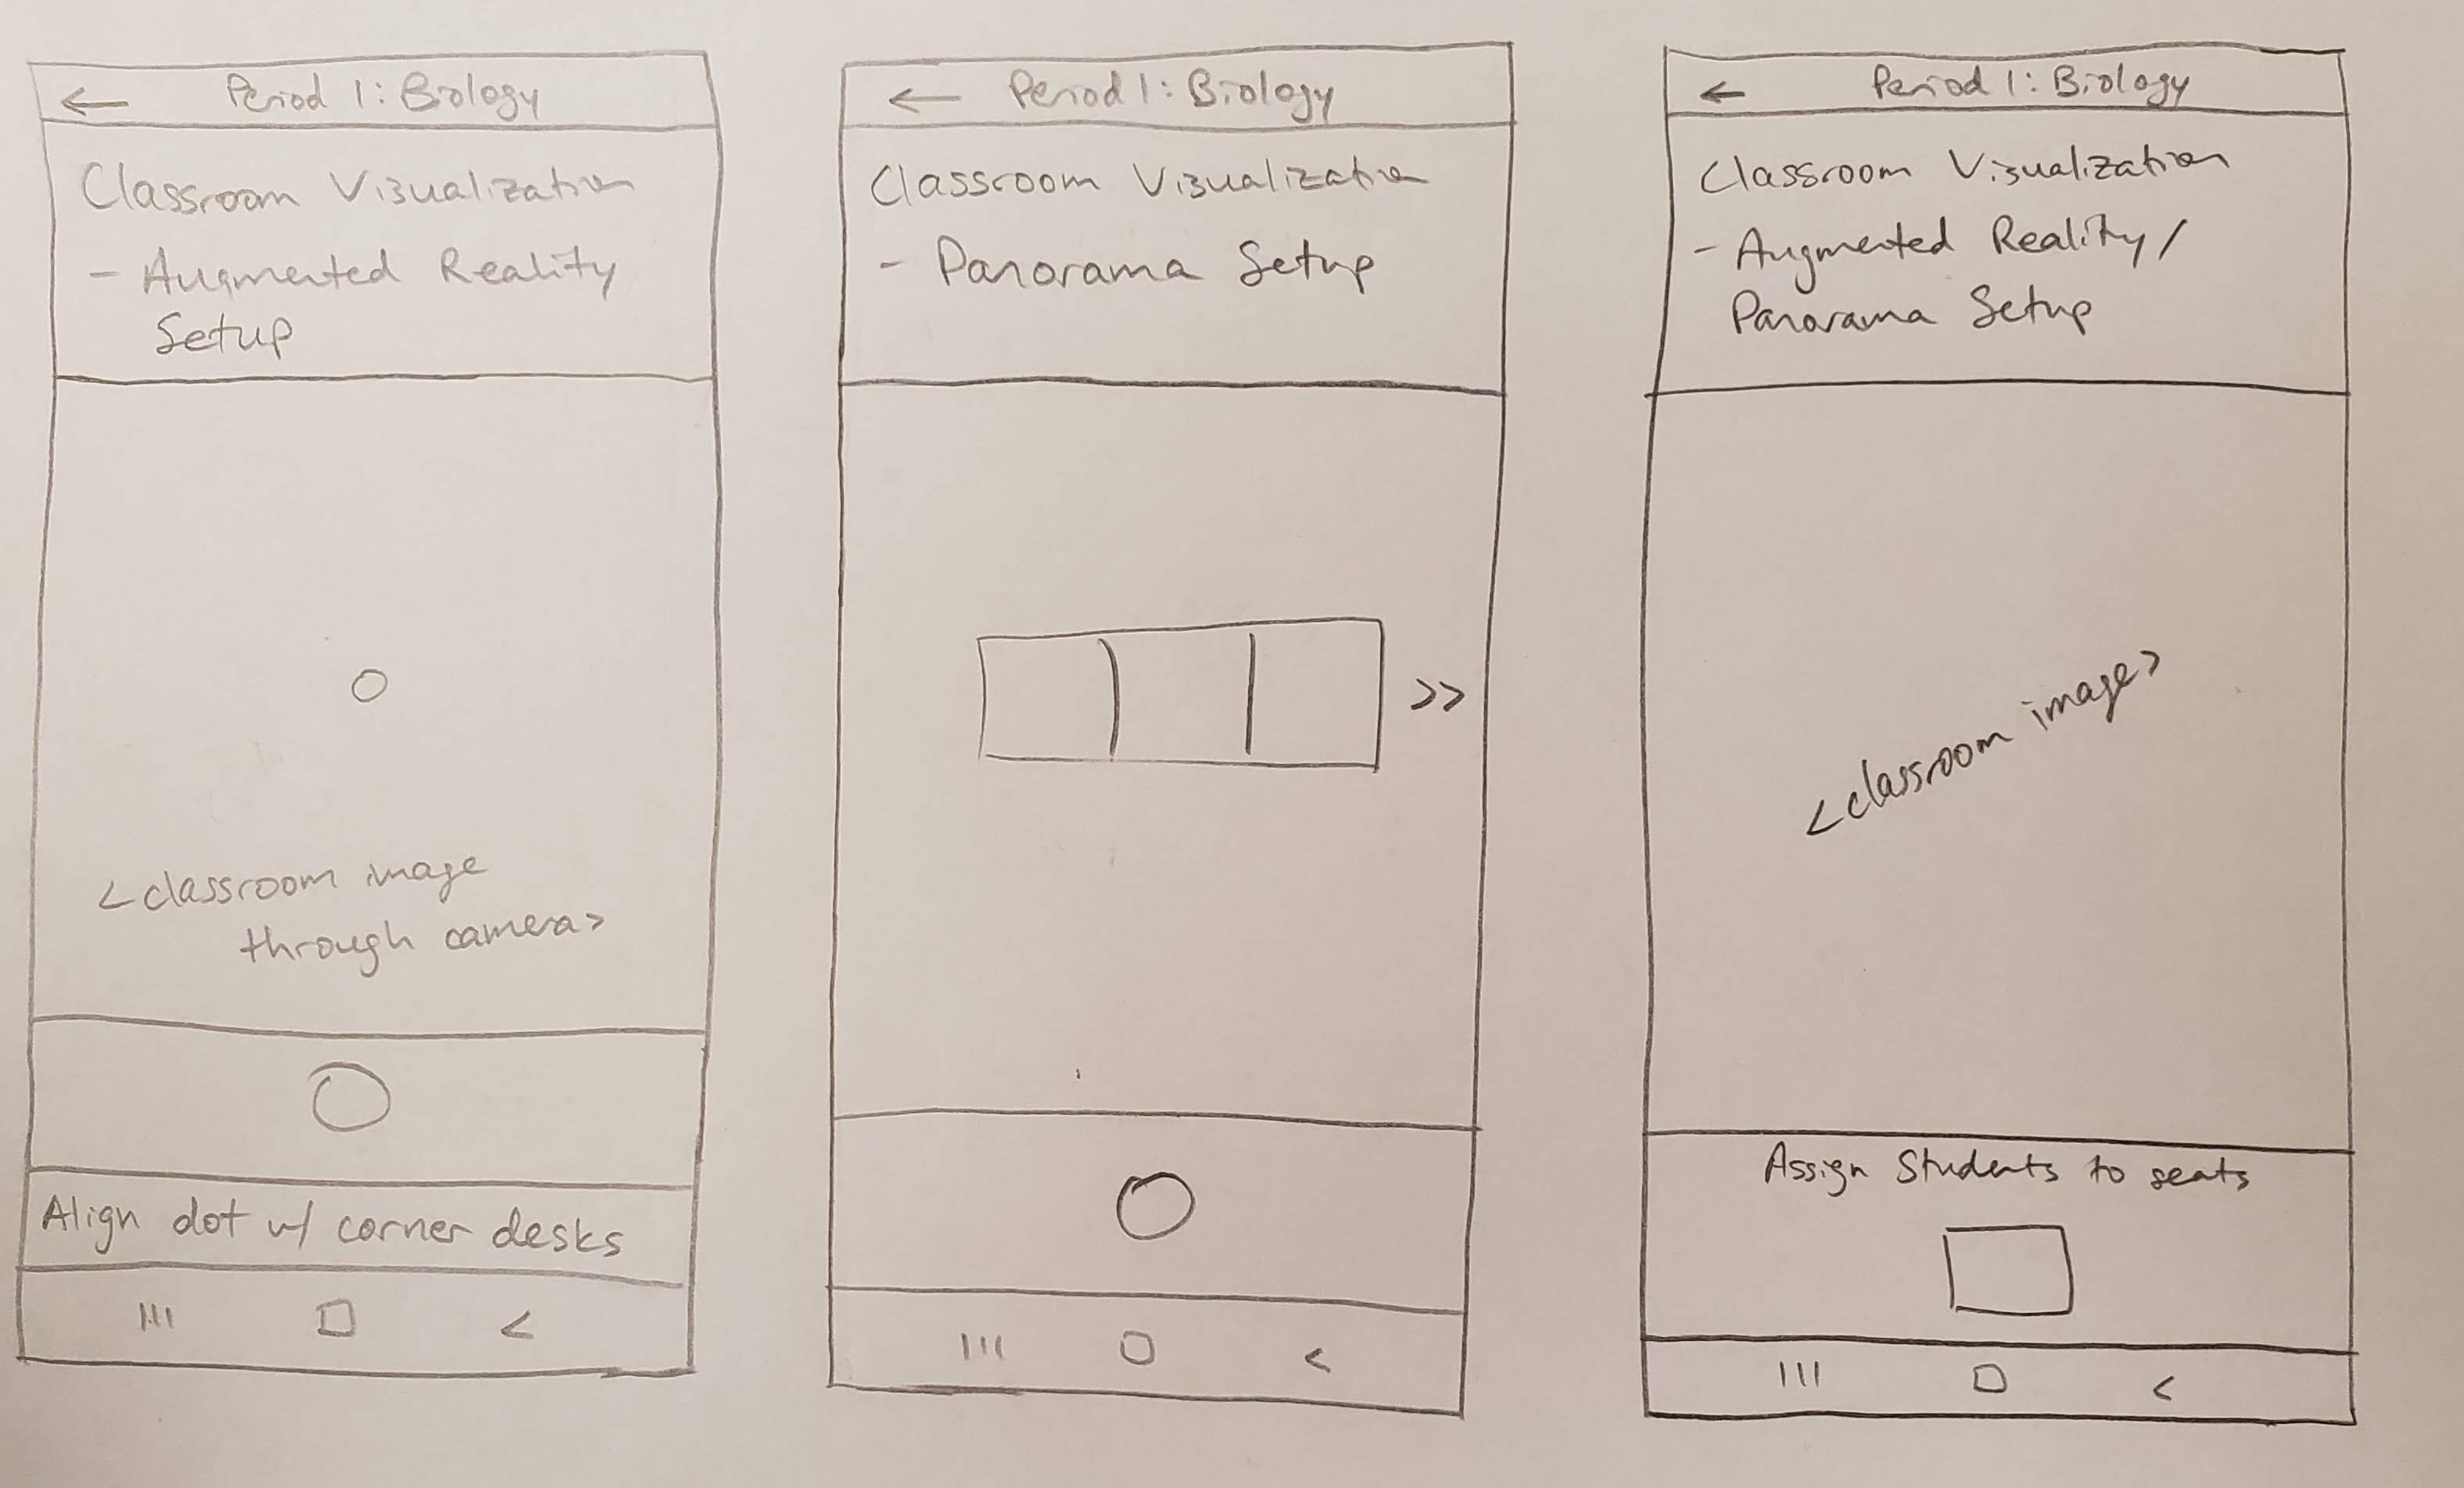 ← Period 1: Biology
Classroom Visualization
- Augmented Reality
Setup
<classroom image
through camera>
Align dot w/ corner desks
← Period 1: Biology
Classroom Visualization
- Panorama Setup
>>
← Period 1: Biology
Classroom Visualization
- Augmented Reality/
Panorama Setup
<classroom image>
Assign Students to seats